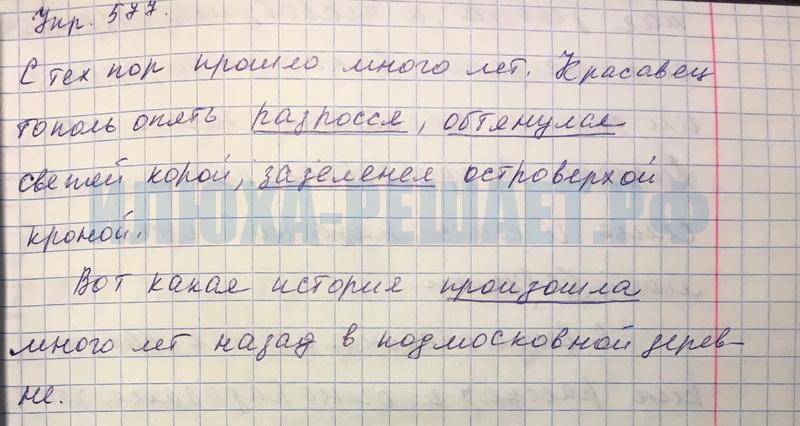 Упр. 577.
С тех пор прошло много лет. Красавец
тополь опять разросся, обтянулся
свежей корой, зазеленел островерхой
кроной.
ИЛЮХА-РЕШАЕТ.РФ
Вот какая история произошла
много лет назад в подмосковной дерев-
не.